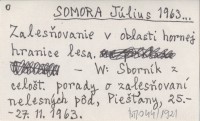 0
SOMORA Július 1963...
Zalesňovanie v oblasti hornej
hranice lesa.
- W: Sborník z
celošt. porady o zalesňovaní
nelesných pôd, Piešťany, 25.-
-27. 11. 1963.